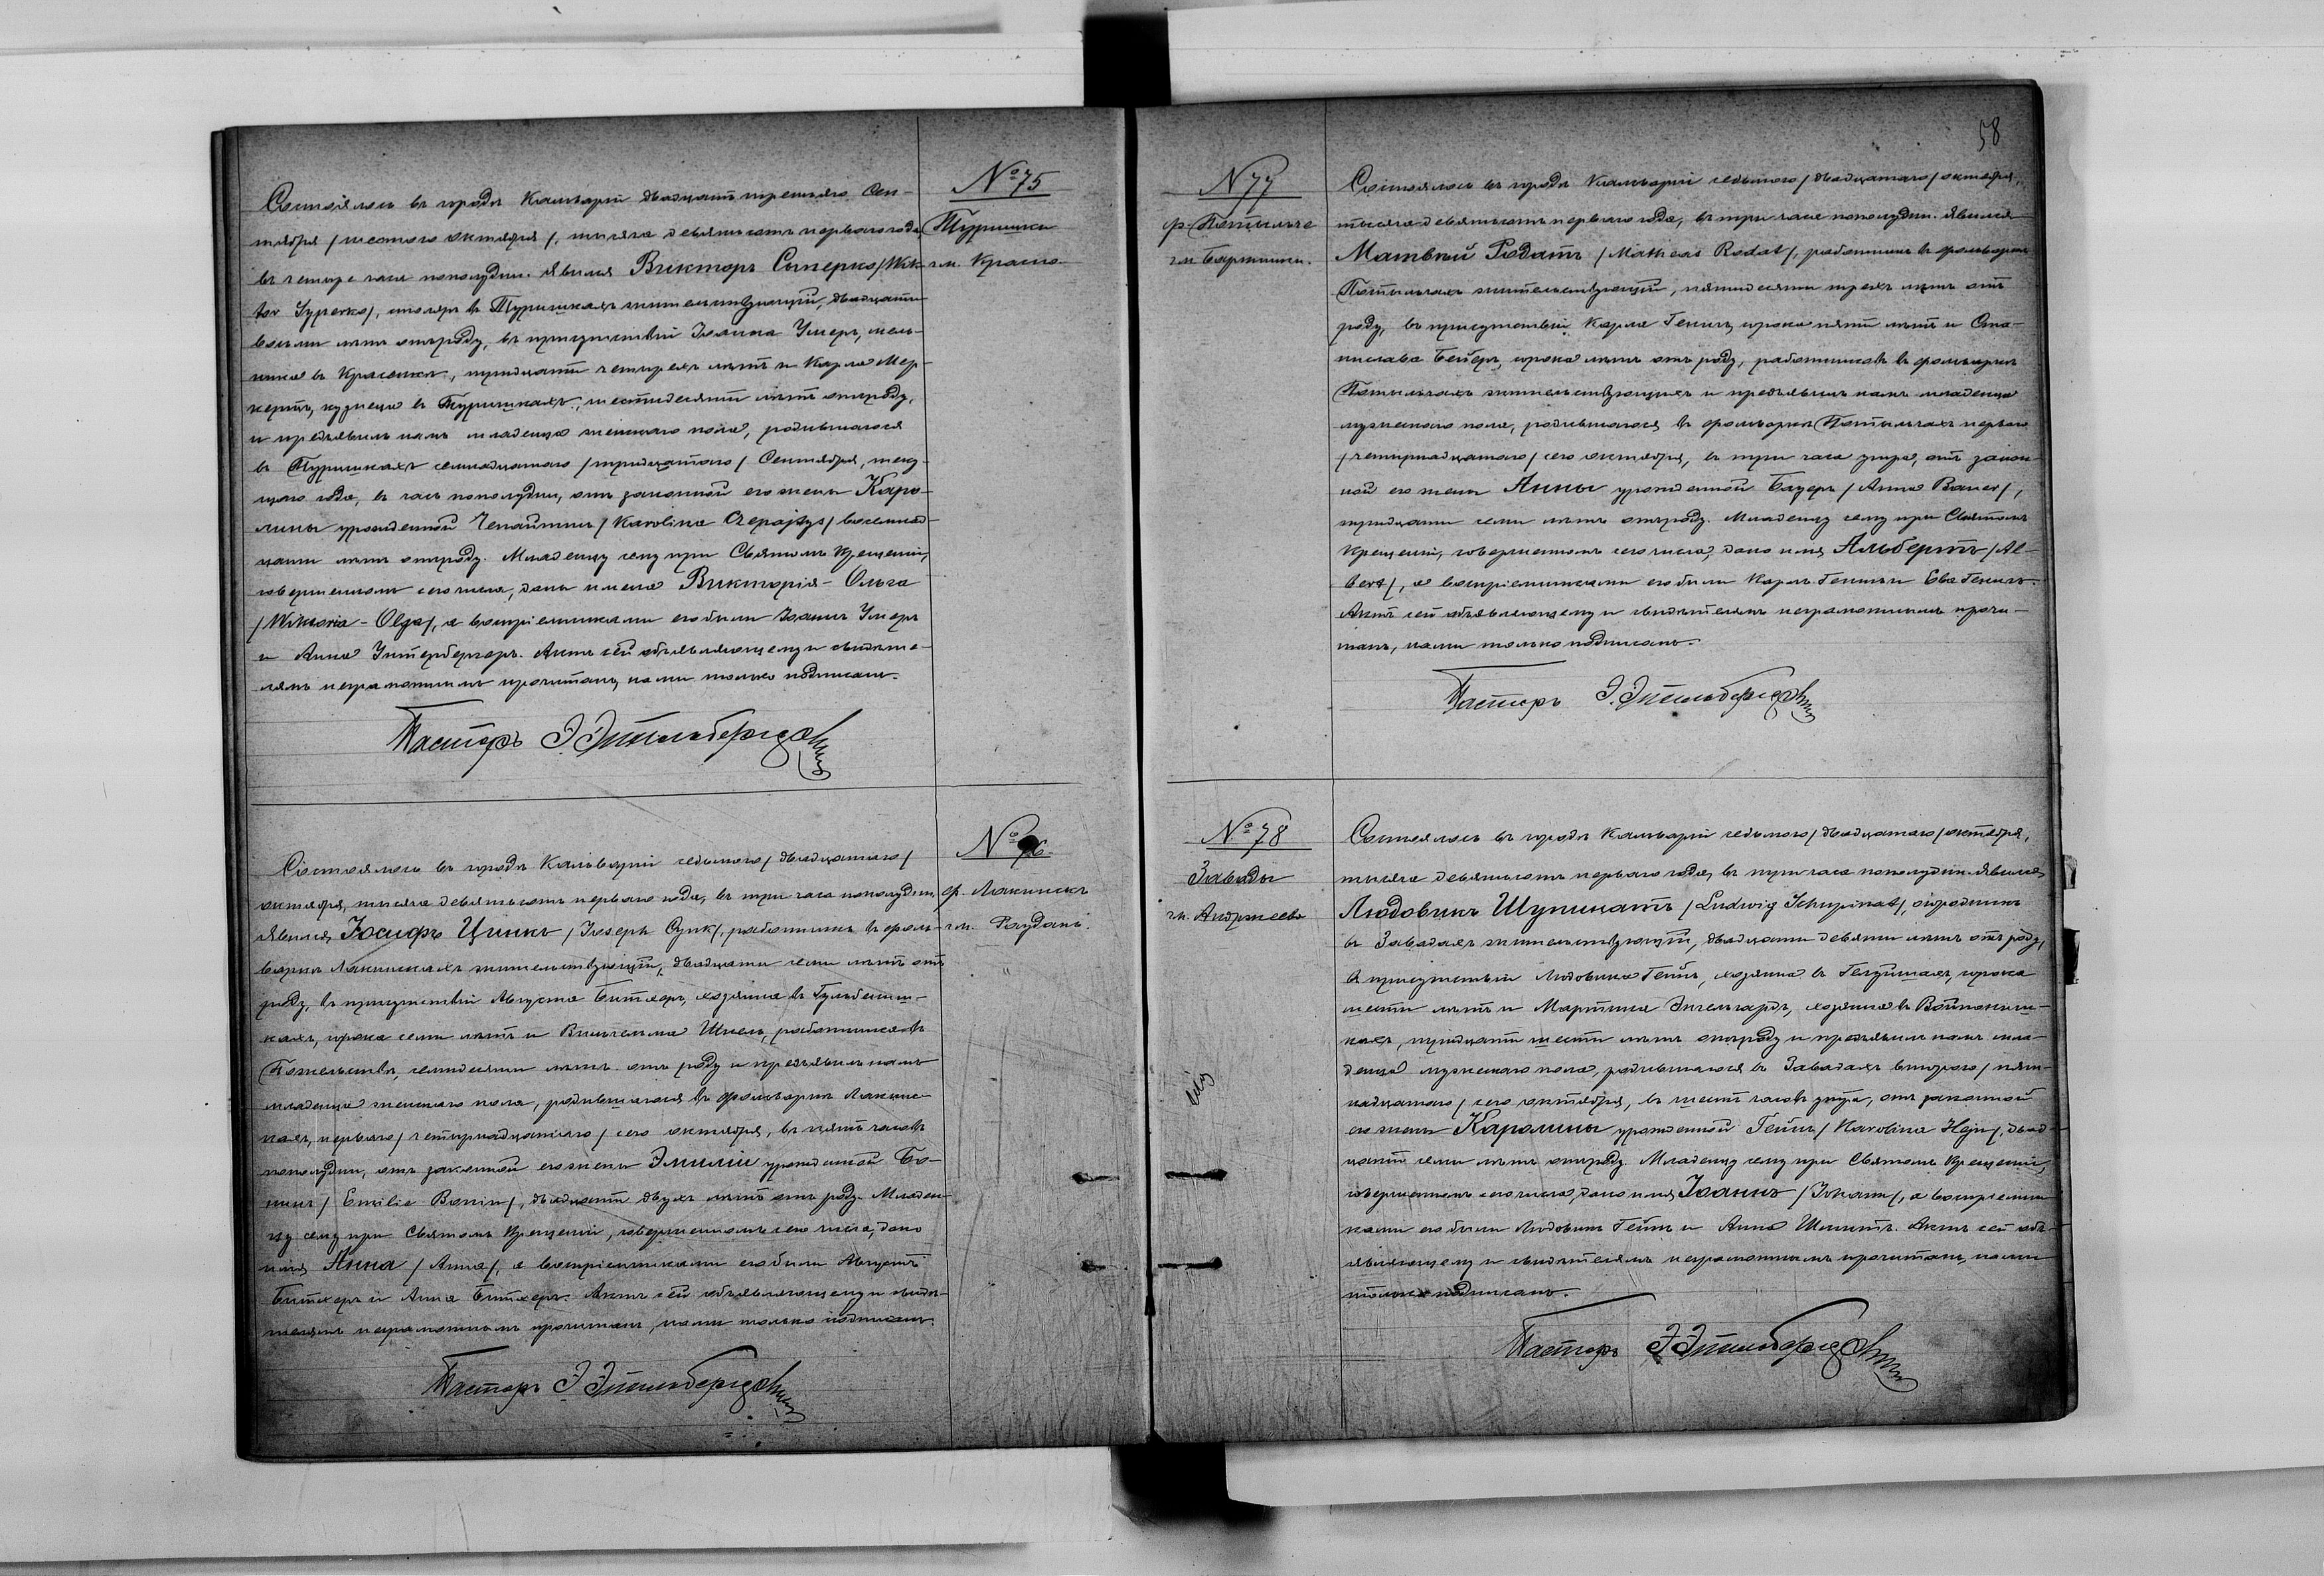 № 75
Туришки
гм. Красно-
Состоялось въ городѣ Кальваріи двадцать третьяго Сен-
тября /шестого октября/, тысяча девятьсотъ перваго года
въ четыре часа пополудни. Явился Викторъ Сыперко /Wik-
tor Syperko/, столяръ въ Туришкахъ жительствующій, двадцати
восьми лѣтъ отъ роду, въ присутствіи Іоанна Умеръ, мель-
ника въ тридцати четырехъ лѣтъ и Карла Мер-
кертъ, кузнеца въ Туришкахъ, шестидесяти лѣтъ отъ роду,
и предъявилъ намъ младенца женскаго пола, родившагося
въ Туришкахъ семнадцатого /тридцатого/ Сентября, теку-
щаго года, въ часъ пополудни, отъ законной его жены Каро-
лины урожденной Чепайтисъ /Karolina Czepajtys/ восемнад-
цати лѣтъ отъ роду. Младенцу сему при Святомъ Крещеніи,
совершенномъ сего числа, даны имена Викторія-Ольга
/Wiktoria-Olga/, а воспріемниками его были Іоаннъ Умеръ
и Анна Унтербергеръ. Актъ сей объявляющему и свидѣте-
лямъ неграмотнымъ прочитанъ, нами только подписанъ.
Пасторъ Э.
№ 76
ф. Лакинскъ
гм. Раудань.
Состоялось въ городѣ Кальваріи седьмого /двадцатого/
октября, тысяча девятьсотъ перваго года, въ три часа пополудни,
явился Іосифъ Цинкъ /Joseph Cynk/, работникъ въ фоль-
варкѣ Лакинскахъ жительствующій, двадцати семи лѣтъ отъ
роду, въ присутствіи Августа Битхеръ, хозяина въ Гульбиниш-
кахъ, сорока семи лѣтъ и Вильгельма Шнель, работника въ
семидесяти лѣтъ отъ роду и предъявилъ намъ
младенца женскаго пола, родившагося въ фольваркѣ Лакинс-
кахъ, перваго /четырнадцатого/ сего октября, въ пять часовъ
пополудни, отъ законной его жены Эмиліи урожденной Бо-
нинъ /Emilie Bonin/, двадцати двухъ лѣтъ отъ роду. Младен-
цу сему при Святомъ Крещеніи, совершенномъ сего числа, дано
имя Анна /Anna/, а воспріемниками его были Августъ
Битхеръ и Анна Битхеръ. Актъ сей объявляющему и свидѣ-
телямъ неграмотнымъ прочитанъ, нами только подписанъ.
Пасторъ Э.
58
N 77
ф. Потыльче
гм. Бартники.
Состоялось въ городѣ Кальваріи седьмого /двадцатого/ октября,
тысяча девятьсотъ перваго года, въ три часа пополудни. Явился
Матвѣй Родатъ /Matheas Rodat/, работникъ въ фольваркѣ
Потыльчахъ жительствующій, пятидесяти трехъ лѣтъ отъ
роду, въ присутствіи Карла Генигъ, сорока пяти лѣтъ и Ста-
нислава Бейеръ, сорока лѣтъ отъ роду, работниковъ въ фольваркѣ
Потыльчахъ жительствующихъ и предъявилъ намъ младенца
мужескаго пола, родившагося въ фольваркѣ Потыльчахъ перваго
/четырнадцатого/ сего октября, въ три часа утра, отъ закон-
ной его жены Анны урожденной Бауеръ /Anna Bauer/,
тридцати семи лѣтъ отъ роду. Младенцу сему при Святомъ
Крещеніи, совершенномъ сего числа, дано имя Альбертъ /Al-
bert/, а воспріемниками его были Карлъ Генигъ и Ева Генигъ.
Актъ сей объявляющему и свидѣтелямъ неграмотнымъ прочи-
танъ, нами только подписанъ.
Пасторъ Э.
№ 78
Завады
гм. Андржеево
Состоялось въ городѣ Кальваріи седьмого /двадцатого/ октября,
тысяча девятьсотъ перваго года, въ три часа пополудни. Явился
Людовикъ Шупинатъ /Ludwig Schupinat/, огородникъ
въ Завадахъ жительствующій, двадцати девяти лѣтъ отъ роду,
въ присутствіи Людовика Гейнъ, хозяина въ сорока
шести лѣтъ и Мартина Энгельгардъ, хозяина въ
кахъ, тридцати шести лѣтъ отъ роду и предъявилъ намъ мла-
денца мужескаго пола, родившагося въ Завадахъ второго /пят-
надцатого/ сего октября, въ шесть часовъ утра, отъ законной
его жены Каролины урожденной Гейнъ /Karolina Hejn/, двад-
цати семи лѣтъ отъ роду. Младенцу сему при Святомъ Крещеніи,
совершенномъ сего числа, дано имя Іоаннъ /Johann/, а воспріемни-
ками его были Людовикъ Гейнъ и Анна Шмитъ. Актъ сей объ-
являющему и свидѣтелямъ неграмотнымъ прочитанъ, нами
только подписанъ.
Пасторъ Э.